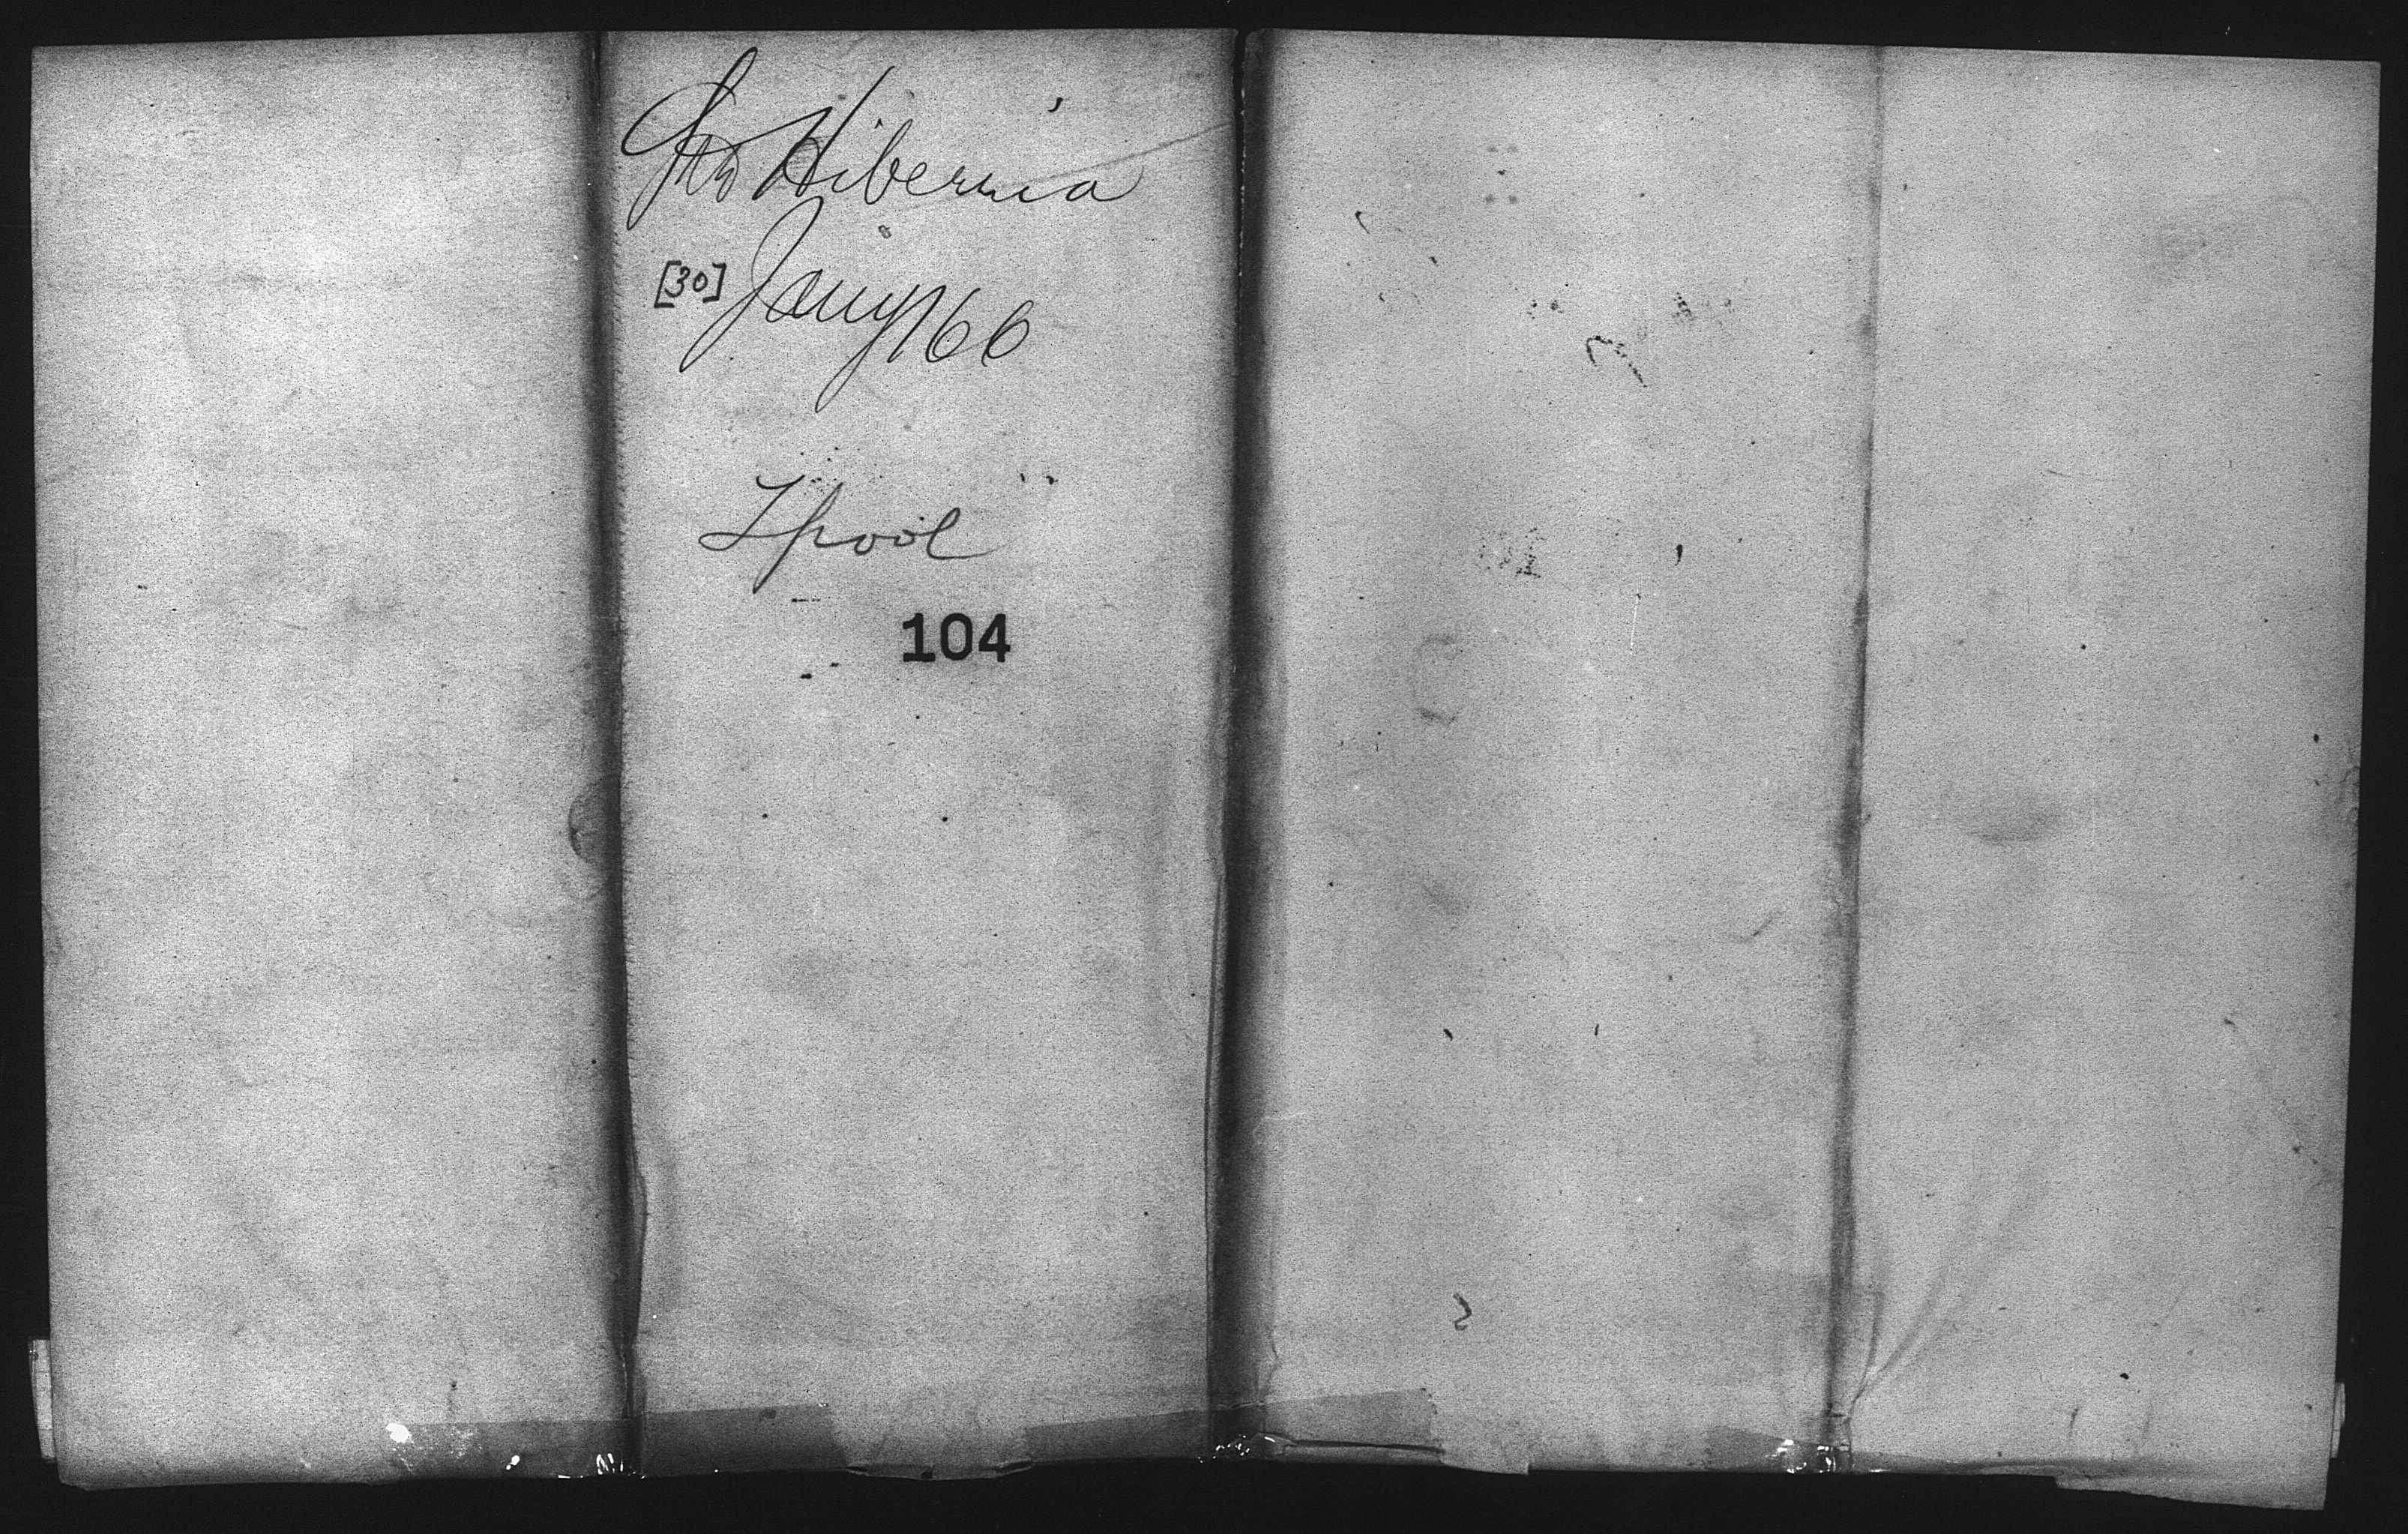 Hibernia
[30] Jany 66
Lpool
104